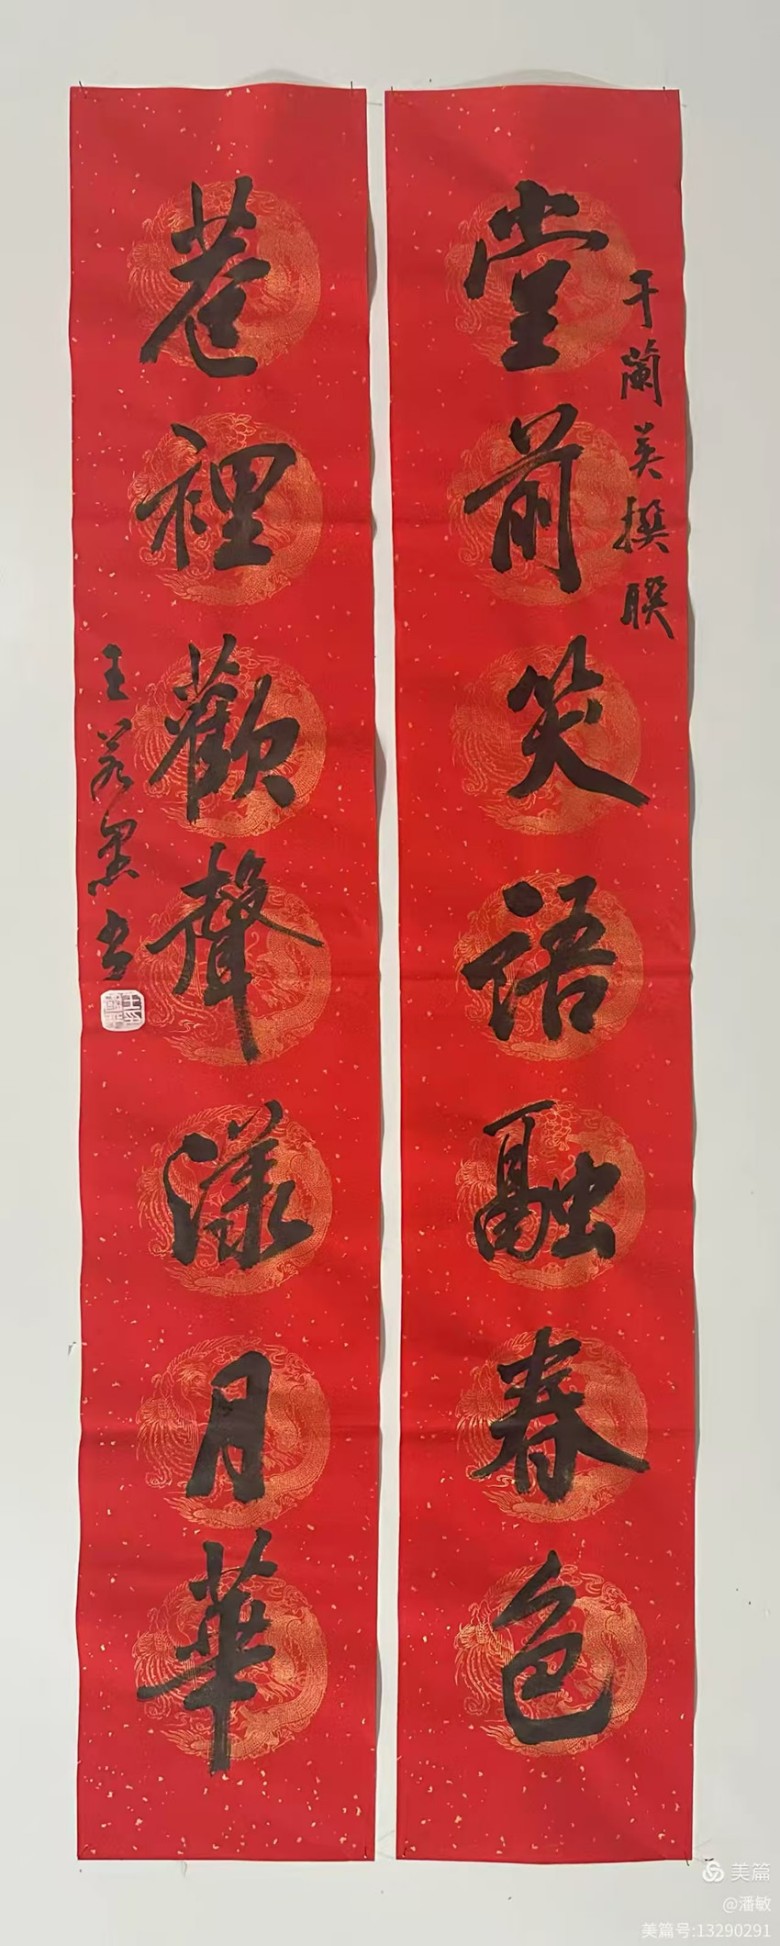 于蘭英撰聯
堂前笑語融春色
巷裡歡聲漾月華
王
書
美篇
@潘敏
美篇号:13290291